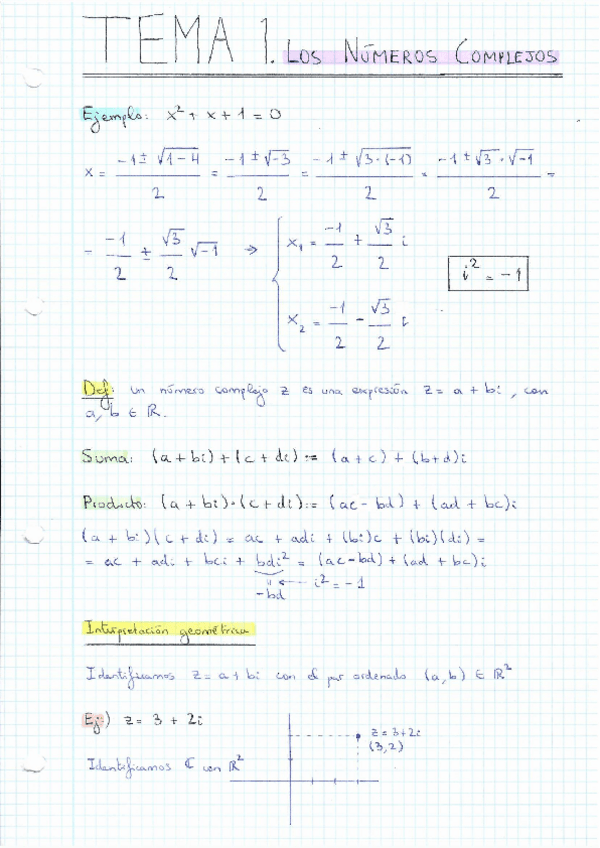 TEMA 1. LOS NÚMEROS COMPLEJOS
Ejemplo: x² + x + 1 = 0
x = (-1 ± √(1-4))/2 = (-1 ± √-3)/2 = (-1 ± √(3·(-1)))/2 = (-1 ± √3 · √-1)/2 =
= -1/2 ± √3/2 √-1 → { x₁ = -1/2 + √3/2 i
i² = -1
x₂ = -1/2 - √3/2 i
Def: un número complejo z es una expresión z = a + bi, con
a, b ∈ ℝ.
Suma: (a + bi) + (c + di) := (a + c) + (b+d)i
Producto: (a + bi)·(c + di) := (ac - bd) + (ad + bc)i
(a + bi)(c + di) = ac + adi + (bi)c + (bi)(di) =
= ac + adi + bci + bdi² = (ac-bd) + (ad + bc)i
-bd ← i² = -1
Interpretación geométrica
Identificamos z = a + bi con el par ordenado (a, b) ∈ ℝ²
Ej) z = 3 + 2i
z = 3+2i
(3,2)
Identificamos ℂ con ℝ²